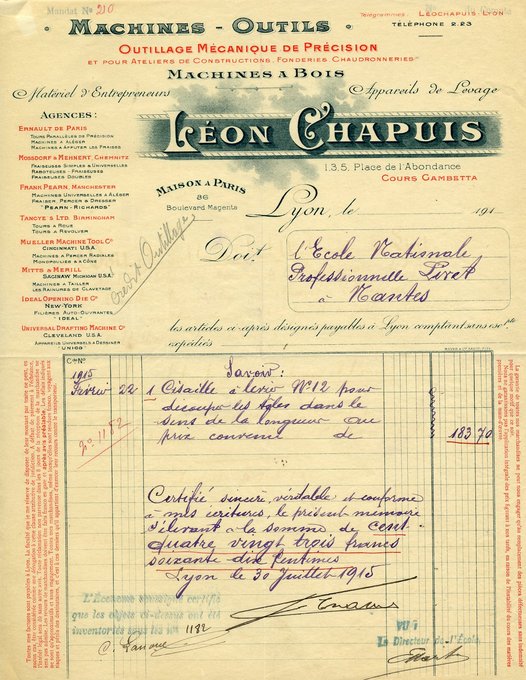 Mandat No 210
MACHINES - OUTILS
Télégrammes: LÉOCHAPUIS LYON
TÉLÉPHONE 2.23
OUTILLAGE MÉCANIQUE DE PRÉCISION
ET POUR ATELIERS DE CONSTRUCTIONS, FONDERIES CHAUDRONNERIES
MACHINES A BOIS
Matériel d'Entrepreneurs
Appareils de Levage
LÉON CHAPUIS
1.3.5. Place de l'Abondance
COURS GAMBETTA
MAISON A PARIS
86
Boulevard Magenta
AGENCES:
ERNAULT DE PARIS
TOURS PARALLÈLES DE PRÉCISION
MACHINES A ALÉSER
MACHINES A AFFUTER LES FRAISES
MOSSDORF & MEHNERT, CHEMNITZ
FRAISEUSES SIMPLES & UNIVERSELLES
RABOTEUSES - FRAISEUSES
FRAISEUSES DOUBLES
FRANK PEARN, MANCHESTER
MACHINES UNIVERSELLES A ALÉSER
FRAISER, PERCER & DRESSER
"PEARN-RICHARDS"
TANGYE'S LTD BIRMINGHAM
TOURS A ROUE
TOURS A REVOLVER
MUELLER MACHINE TOOL Co
CINCINNATI U.S.A.
MACHINES A PERCER RADIALES
MONOPOULIE & A CÔNE
MITTS & MERILL
SAGINAW MICHIGAN U.S.A.
MACHINES A TAILLER
LES RAINURES DE CLAVETAGE
IDEAL OPENING DIE Co
NEW-YORK
FILIÈRES AUTO-OUVRANTES
"IDEAL"
UNIVERSAL DRAFTING MACHINE Co
CLEVELAND U.S.A.
APPAREILS UNIVERSELS A DESSINER
"UNICO"
Crédit Outillage
Lyon, le 191
Doit
l'Ecole Nationale
Professionnelle Livet
à
Nantes
les articles ci-après désignés payables à Lyon comptant sans escpte
expédiés
Cte No
Savoir:
1915
Février 22 1 Cisaille à levier No 12 pour
découper les tôles dans le
sens de la longueur au
prix convenu de 183 70
no 1182
Certifié sincère, véritable et conforme
à mes écritures, le présent mémoire
s'élevant à la somme de cent-
quatre vingt trois francs
soixante dix centimes
Lyon le 30 Juillet 1915
L'Économe soussigné certifie
que les objets ci-dessus ont été
inventoriés sous les No 1182
VU:
Le Directeur de l'École,